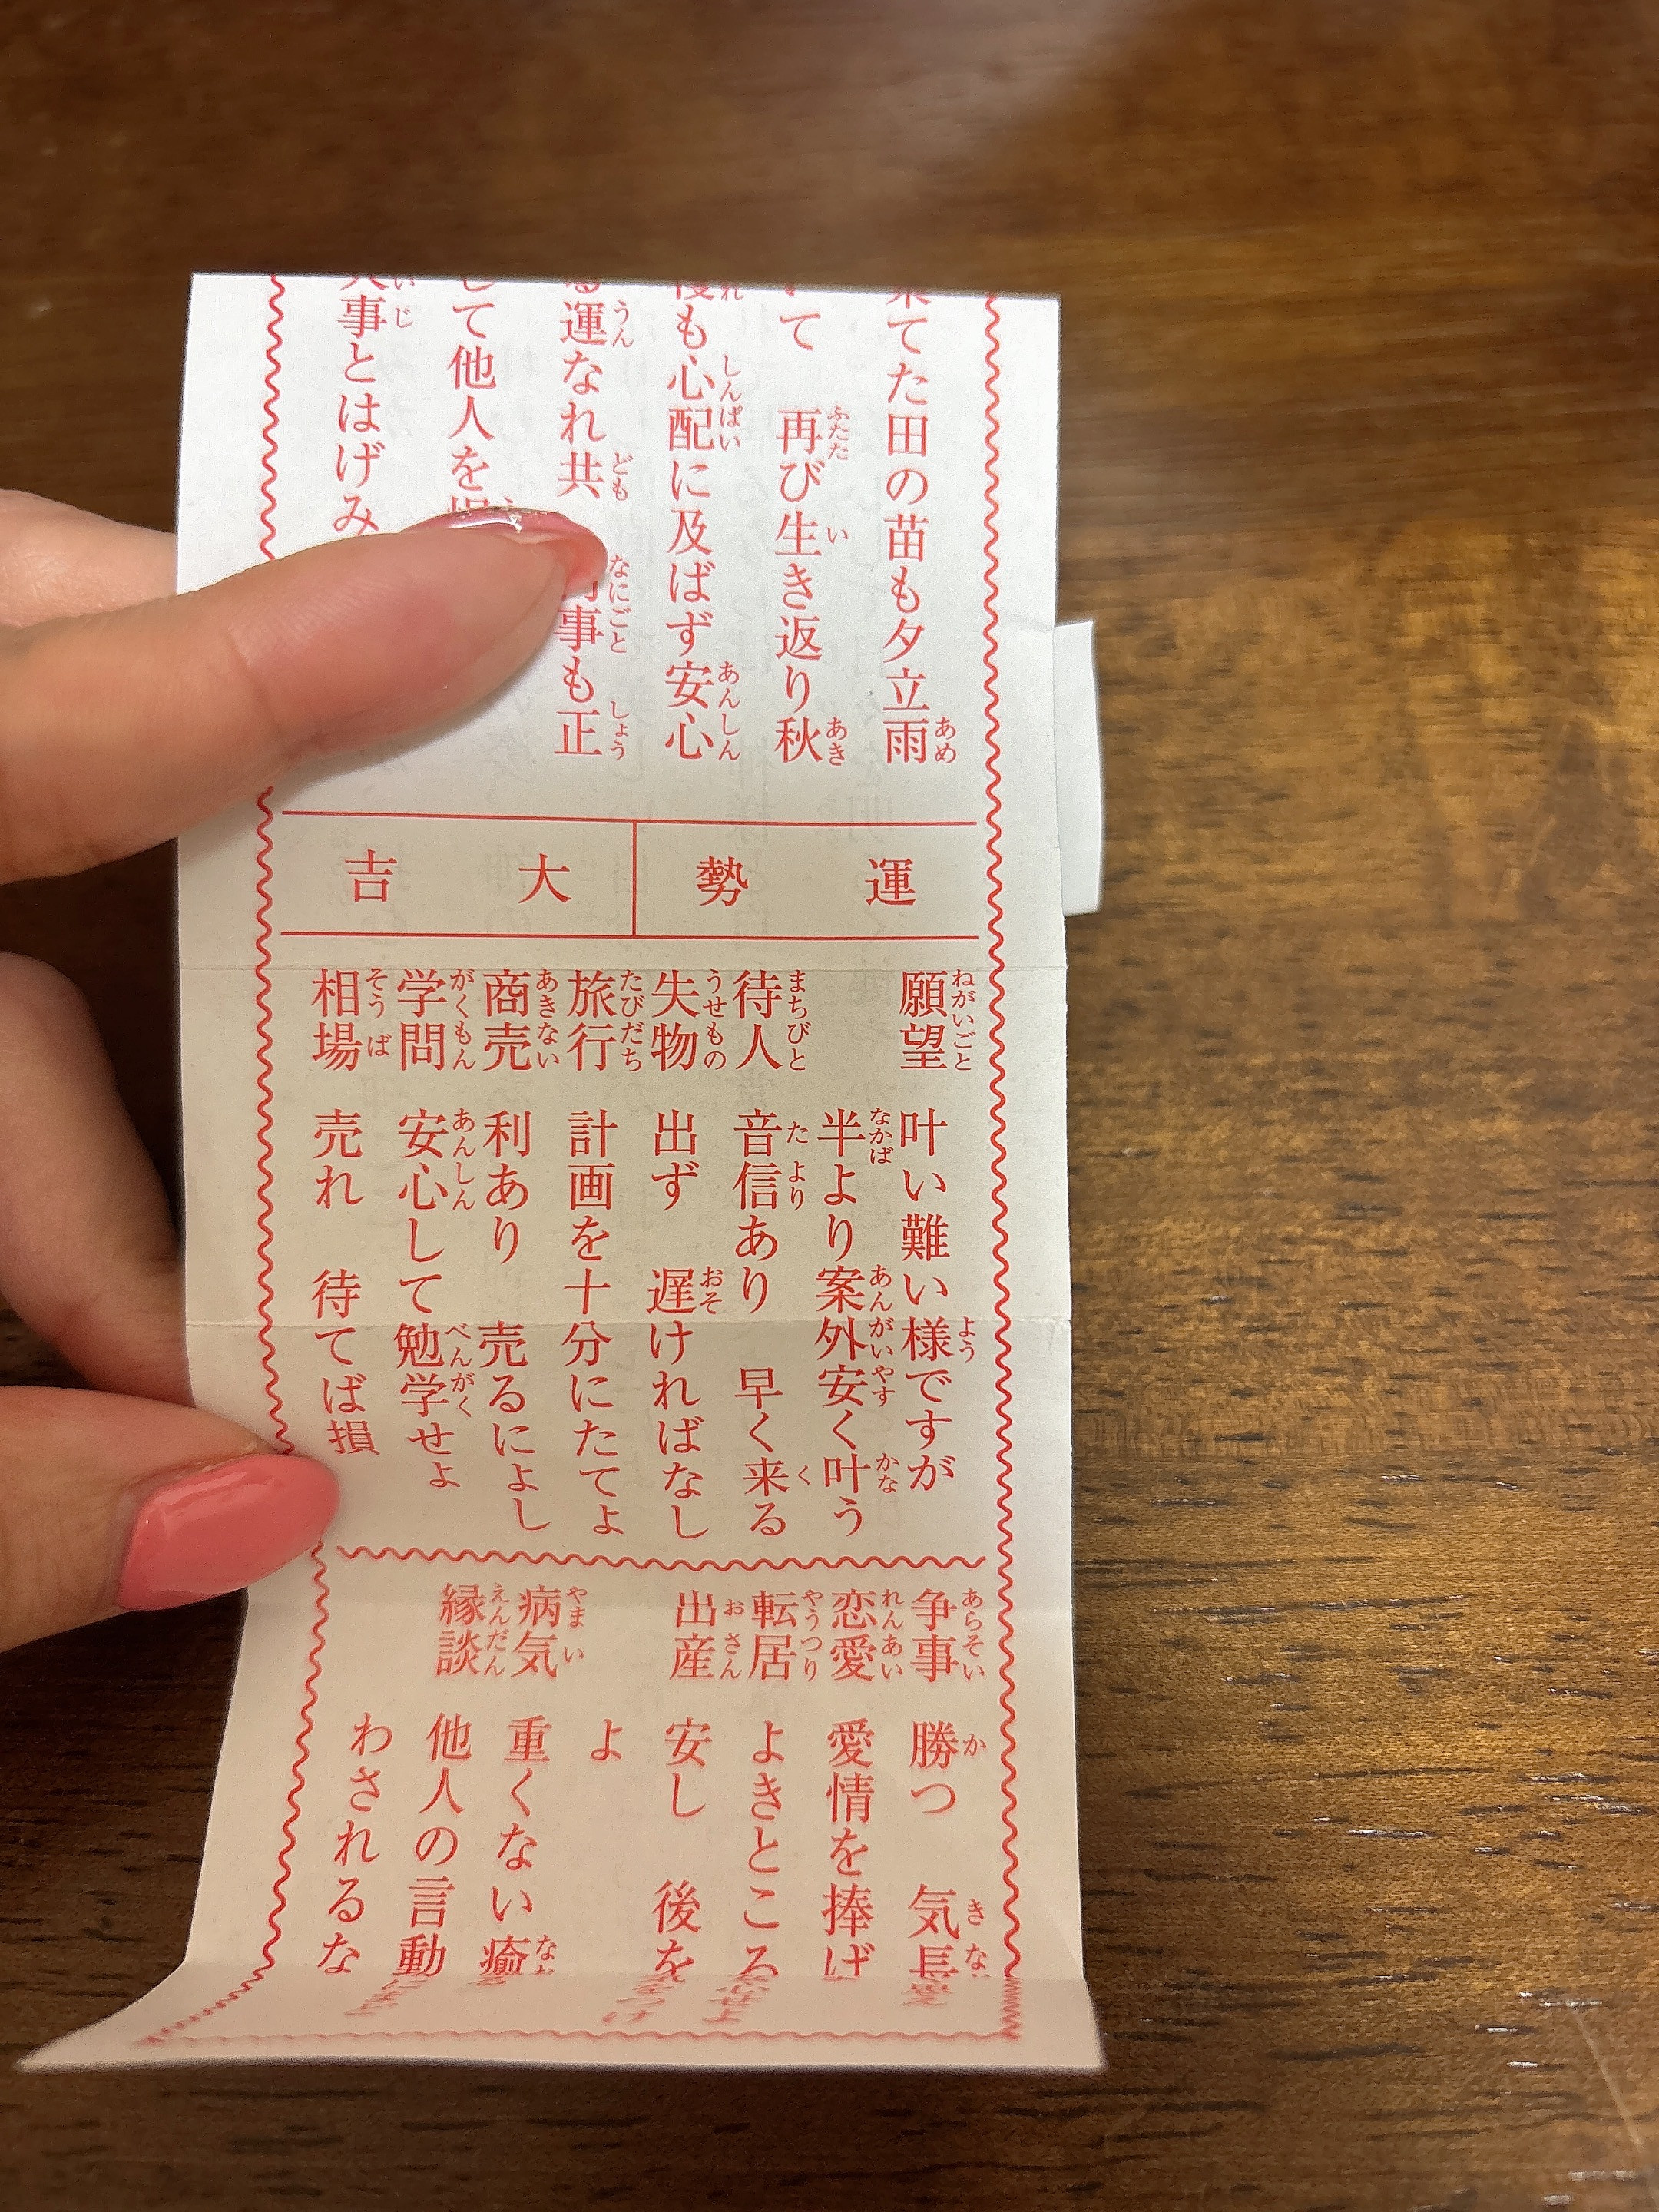 てた田の苗も夕立雨
て 再び生き返り秋
も心配に及ばず安心
運なれ共 事も正
して他人を
事とはげみ
運勢 大吉
願望 叶い難い様ですが
半より案外安く叶う
待人 音信あり 早く来る
失物 出ず 遅ければなし
旅行 計画を十分にたてよ
商売 利あり 売るによし
学問 安心して勉学せよ
相場 売れ 待てば損
争事 勝つ 気長
恋愛 愛情を捧げ
転居 よきところ
出産 安し 後を
よ
病気 重くない 癒
縁談 他人の言動
わされるな